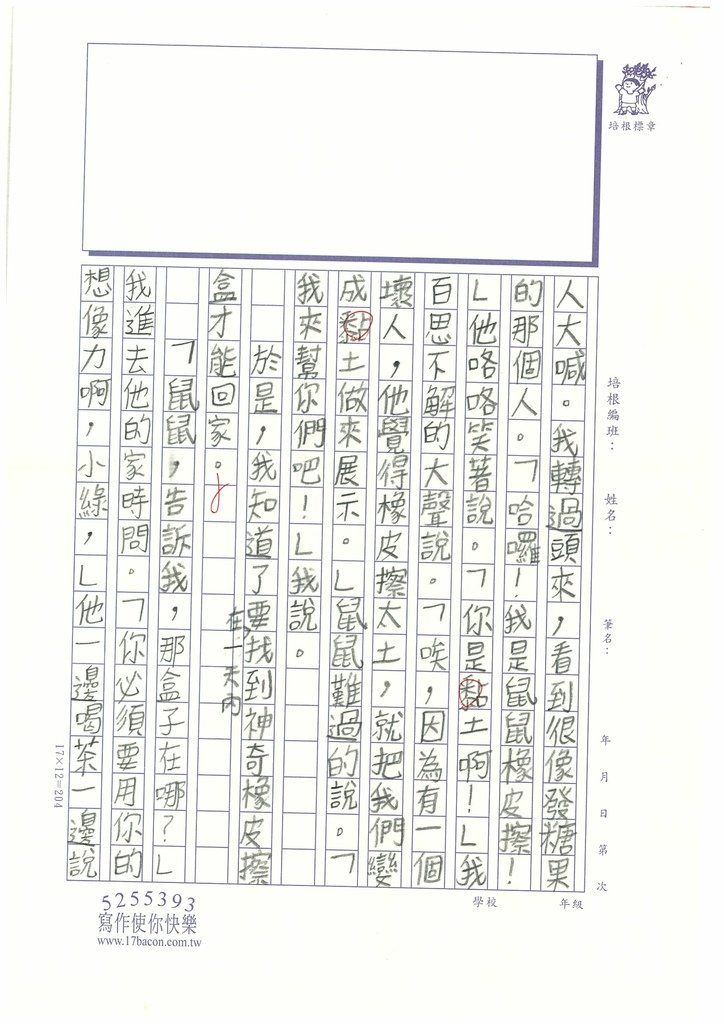 培根標章
培根編班：
姓名：
筆名：
年 月 日 第 次
學校 年級
人大喊。我轉過頭來，看到很像發糖果
的那個人。「哈囉！我是鼠鼠橡皮擦！
」他咯咯笑著說。「你是黏土啊！」我
百思不解的大聲說。「唉，因為有一個
壞人，他覺得橡皮擦太土，就把我們變
成黏土做來展示。」鼠鼠難過的說。「
我來幫你們吧！」我說。
於是，我知道了要在一天內找到神奇橡皮擦
盒才能回家。
「鼠鼠，告訴我，那盒子在哪？」
我進去他的家時問。「你必須要用你的
想像力啊，小綠，」他一邊喝茶一邊說
17×12=204
5255393
寫作使你快樂
www.17bacon.com.tw